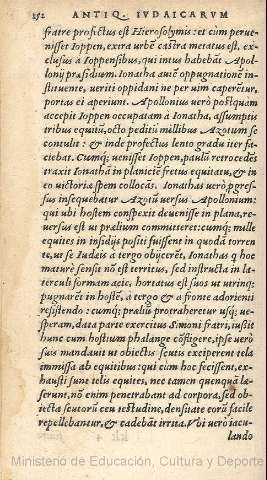 252 ANTIQ. IVDAICARVM
fratre profectus est Hierosolymis: et cùm perue-
nisset Ioppen, extra urbẽ castra metatus est, ex-
clusus a Ioppensibus, qui intus habebãt Apol-
lonij præsidium. Ionatha aũt oppugnationẽ in-
stituente, ueriti oppidani ne per uim caperẽtur,
portas ei aperiunt. Apollonius uerò postquam
accepit Ioppen occupatam a Ionatha, assumptis
tribus equitũ, octo peditũ millibus Azotum se
contulit: & inde profectus lento gradu iter fa-
ciebat. Cumq; uenisset Ioppen, paulũ retrocedẽs
traxit Ionathã in planiciẽ fretus equitatu, & in
eo uictoriæ spem collocãs. Ionathas uerò pgres-
sus insequebatur Azotũ uersus Apollonium:
qui ubi hostem conspexit deuenisse in plana, re-
uersus est ut prælium committeret: cumq; mille
equites in insidijs positi fuissent in quodã torren
te, ut se Iudæis a tergo obijcerẽt, Ionathas q hoc
maturè sensit nõ est territus, sed instructa in la-
terculi formam acie, hortatus est suos ut utrinq;
pugnarẽt in hostẽ, a tergo & a fronte adorienti
resistendo: cumq; præliũ protraheretur usq; ue-
speram, data parte exercitus Simoni fratri, iußit
hunc cum hostium phalange cõfligere, ipse uerò
suis mandauit ut obiectis scutis exciperent tela
immissa ab equitibus: qui cùm hoc fecissent, ex-
hausti sunt telis equites, nec tamen quenquã læ-
serunt, nõ enim penetrabant ad corpora, sed ob-
iecta scutorũ ceu testudine, densitate eorũ facilè
repellebantur, & cadebãt irrita. Vbi uerò iacu-
lando
Ministerio de Educación, Cultura y Deporte